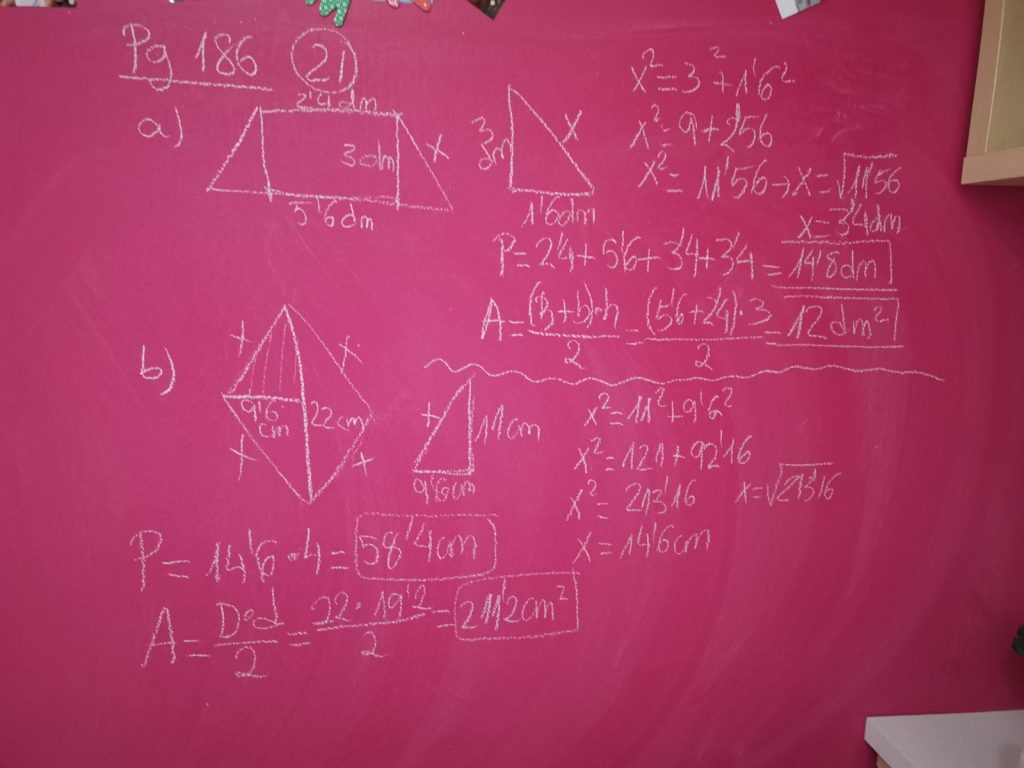 Pg 186 21
a)
2'4 dm
3 dm
x
5'6 dm
3 dm
x
1'6 dm
x² = 3² + 1'6²
x² = 9 + 2'56
x² = 11'56 → x = √11'56
x = 3'4 dm
P = 2'4 + 5'6 + 3'4 + 3'4 = 14'8 dm
A = (B + b)·h / 2 = (5'6 + 2'4)·3 / 2 = 12 dm²
b)
x
x
9'6 cm
22 cm
x
x
x
11 cm
9'6 cm
x² = 11² + 9'6²
x² = 121 + 92'16
x² = 213'16 x = √213'16
x = 14'6 cm
P = 14'6 · 4 = 58'4 cm
A = D·d / 2 = 22·19'2 / 2 = 211'2 cm²